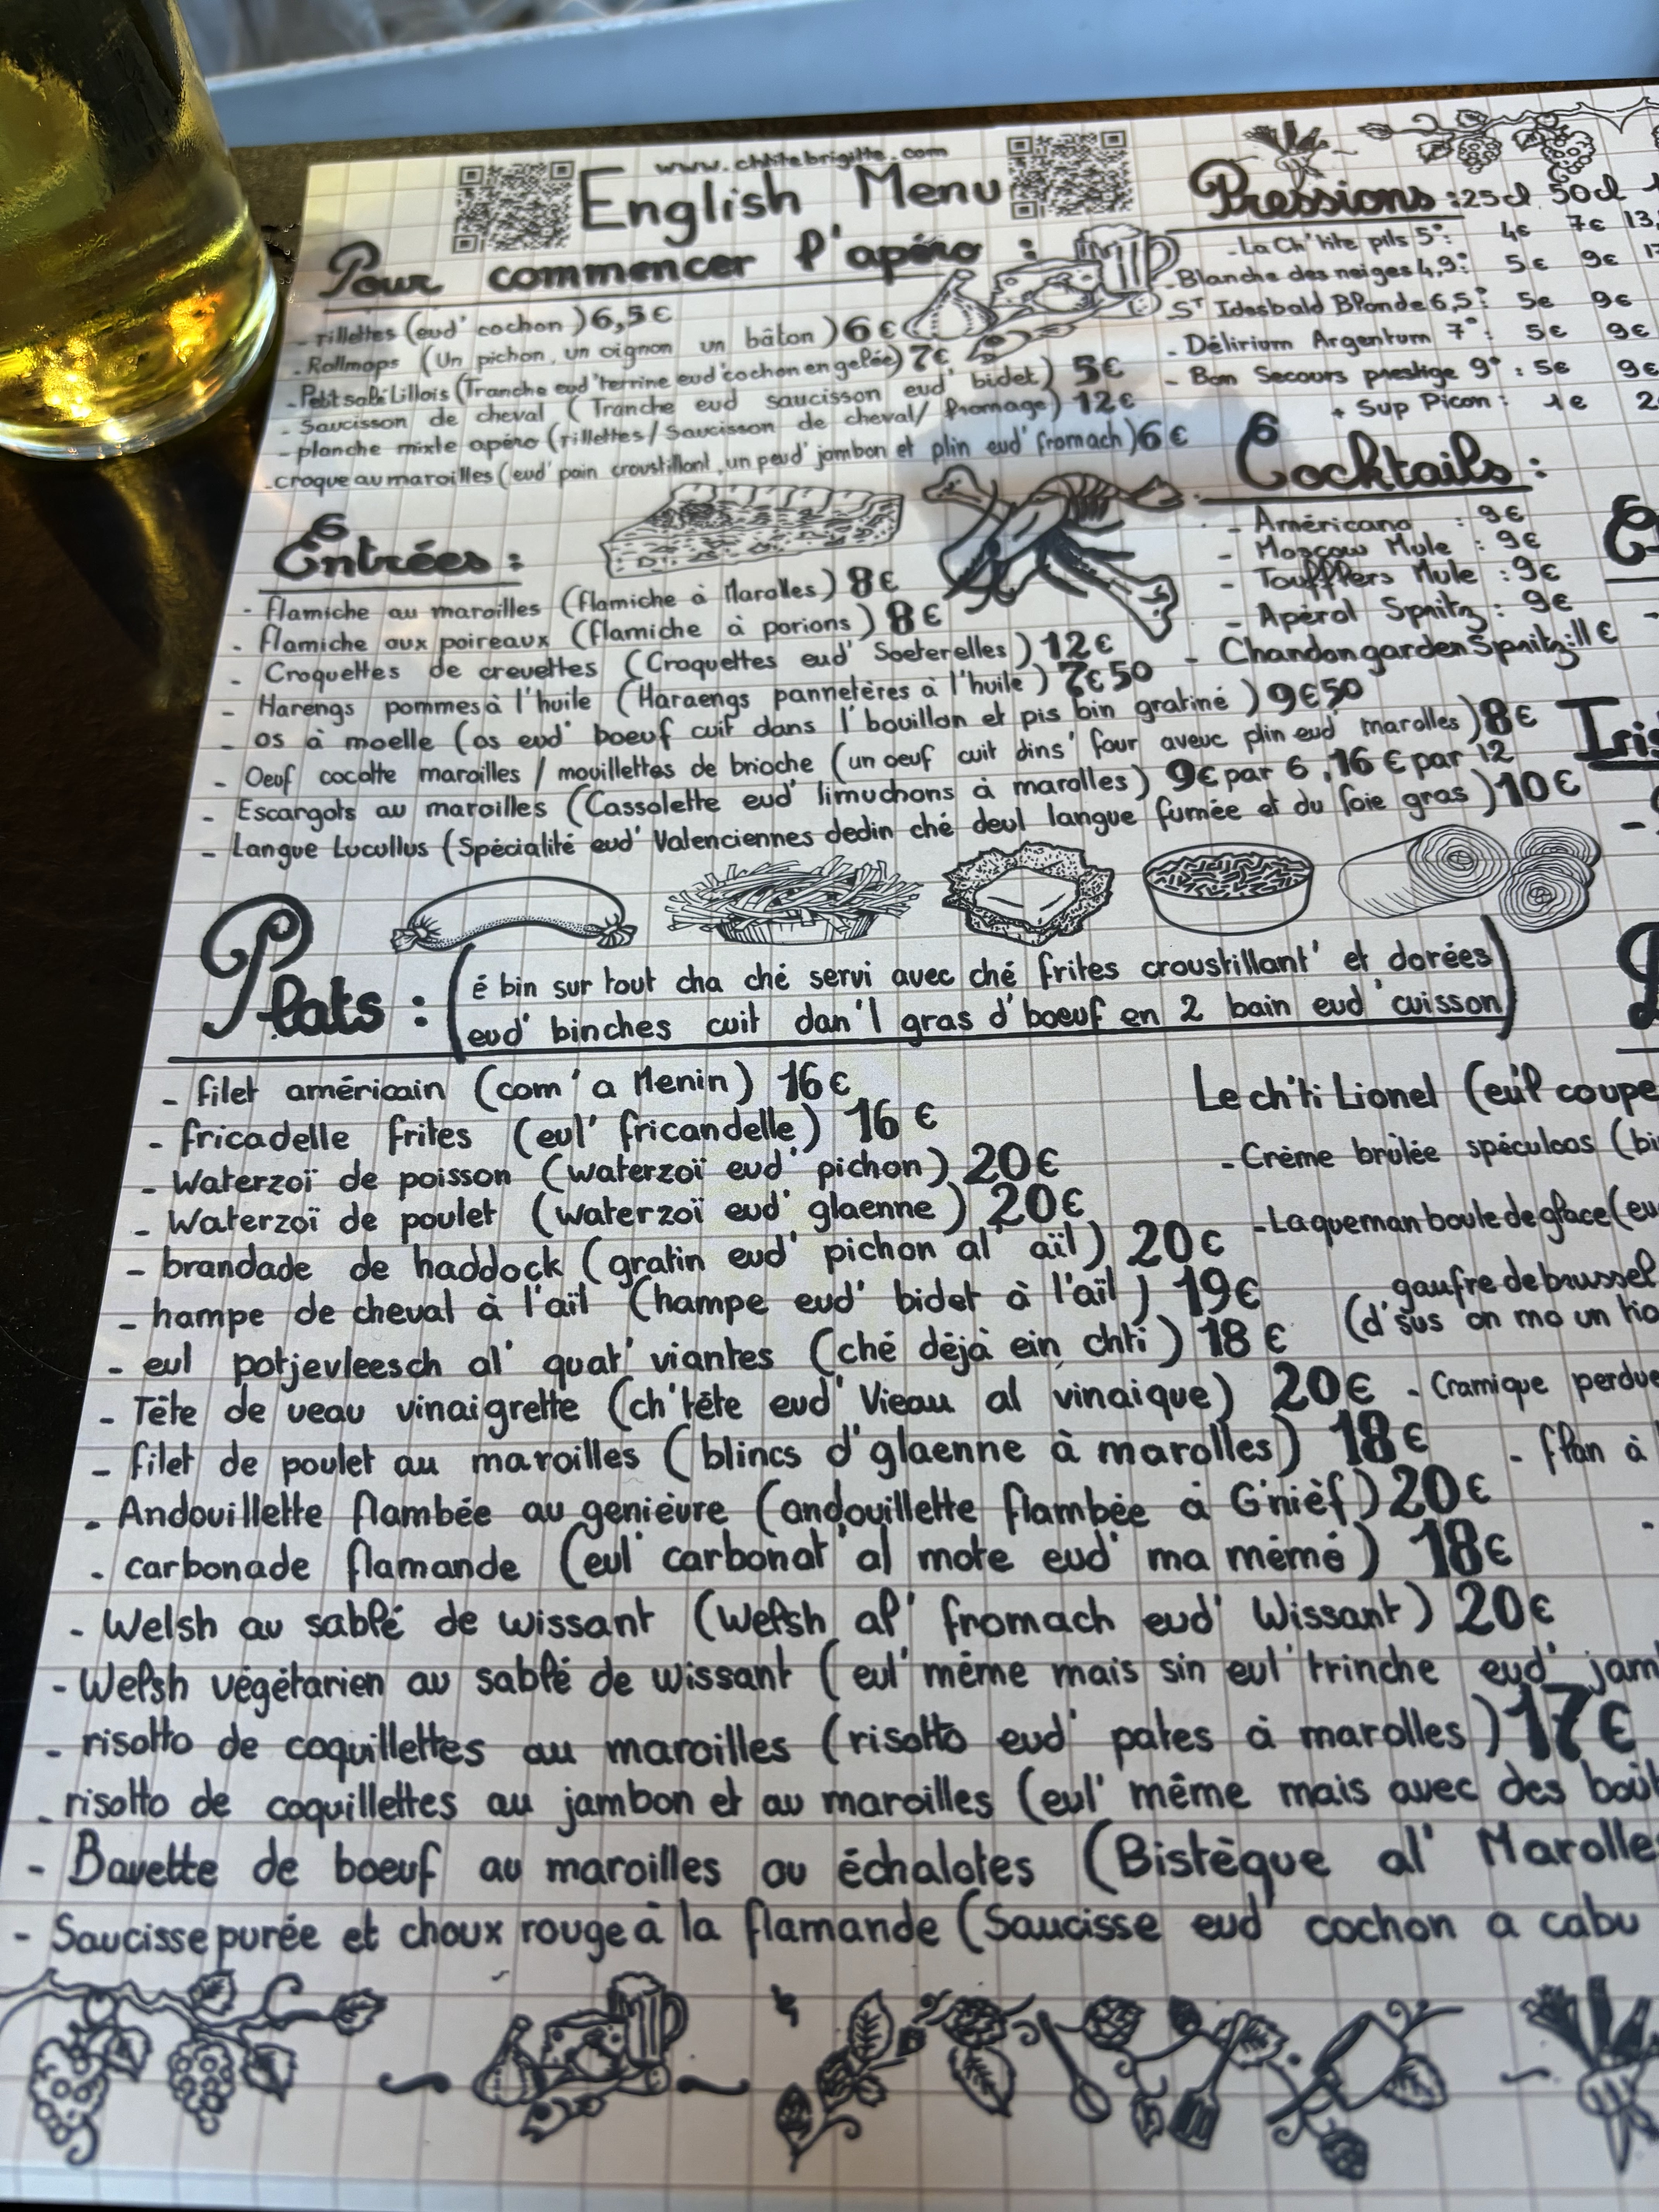 www.chtitebrigitte.com
English Menu
Pour commencer l'apéro :
- rillettes (eud' cochon) 6,5€
- Rollmops (Un pichon, un oignon un bâton) 6€
- Petit salé Lillois (Tranche eud' terrine eud' cochon en gelée) 7€
- Saucisson de cheval (Tranche eud saucisson eud' bidet) 5€
- planche mixte apéro (rillettes/Saucisson de cheval/fromage) 12€
- croque au maroilles (eud' pain croustillant, un peud' jambon et plin eud' fromach) 6€
Entrées :
- flamiche au maroilles (flamiche à Marolles) 8€
- flamiche aux poireaux (flamiche à porions) 8€
- Croquettes de crevettes (Croquettes eud' Soeterelles) 12€
- Harengs pommes à l'huile (Haraengs pannetères à l'huile) 7€50
- os à moelle (os eud' boeuf cuit dans l'bouillon et pis bin gratiné) 9€50
- Oeuf cocotte maroilles / mouillettes de brioche (un oeuf cuit dins' four aveuc plin eud' marolles) 8€
- Escargots au maroilles (Cassolette eud' limuchons à marolles) 9€ par 6, 16€ par 12
- Langue Lucullus (Spécialité eud' Valenciennes dedin ché deul langue fumée et du foie gras) 10€
Plats : (é bin sur tout cha ché servi avec ché frites croustillant' et dorées
eud' binches cuit dan'l gras d'boeuf en 2 bain eud' cuisson)
- filet américain (com'a Menin) 16€
- fricadelle frites (eul' fricandelle) 16€
- Waterzoï de poisson (waterzoï eud' pichon) 20€
- Waterzoï de poulet (waterzoï eud' glaenne) 20€
- brandade de haddock (gratin eud' pichon al' aïl) 20€
- hampe de cheval à l'aïl (hampe eud' bidet à l'aïl) 19€
- eul potjevleesch al' quat' viantes (ché déjà ein chti) 18€
- Tête de veau vinaigrette (ch'tête eud' Vieau al vinaique) 20€
- filet de poulet au maroilles (blincs d'glaenne à marolles) 18€
- Andouillette flambée au genièvre (andouillette flambée à G'nièf) 20€
- carbonade flamande (eul' carbonat' al mote eud' ma mémé) 18€
- Welsh au sablé de wissant (Welsh al' fromach eud' Wissant) 20€
- Welsh végétarien au sablé de wissant (eul' même mais sin eul' trinche eud' jam
- risotto de coquillettes au maroilles (risotto eud' pates à marolles) 17€
- risotto de coquillettes au jambon et au maroilles (eul' même mais avec des bout
- Bavette de boeuf au maroilles ou échalotes (Bistèque al' Marolle
- Saucisse purée et choux rouge à la flamande (Saucisse eud' cochon a cabu
Pressions : 25cl 50cl
- La Ch'tite pils 5°: 4€ 7€ 13,
- Blanche des neiges 4,9°: 5€ 9€ 17
- St Idesbald Blonde 6,5°: 5€ 9€
- Délirium Argentum 7°: 5€ 9€
- Bon Secours prestige 9°: 5€ 9€
+ Sup Picon : 1€ 2
Cocktails :
- Américano : 9€
- Moscow Mule : 9€
- Toufflers Mule : 9€
- Apérol Spritz : 9€
- Chandon garden Spritz : 11€
Iris
Le ch'ti Lionel (eu'l coupe
- Crème brûlée spéculoos (bi
- La queman boule de glace (eu
gaufre de brussel
(d'sus on mo un tio
- Cramique perdue
- flan à